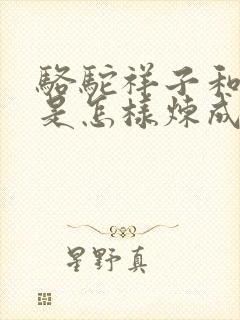 駱駝祥子和
是怎樣煉成
星野真